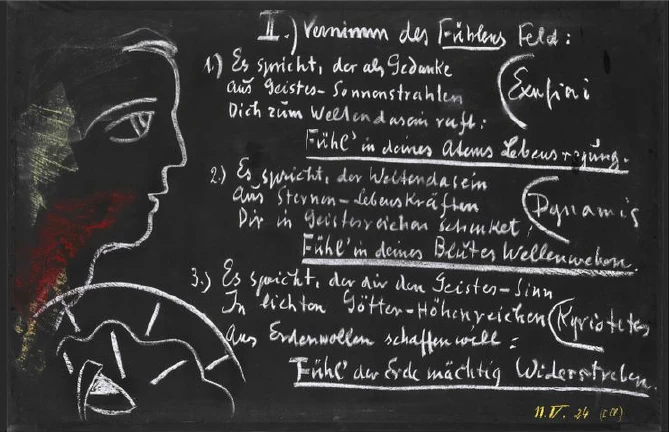 II.) Vernimm des Fühlens Feld:
1.) Es spricht, der als Gedanke
Aus Geistes-Sonnenstrahlen
Dich zum Weltendasein ruft:
(Exusiai
Fühl' in deines Atems Lebensregung.
2.) Es spricht, der Weltendasein
Aus Sternen-Lebenskräften
Dir in Geistesreichen schenket
(Dynamis
Fühl' in deines Blutes Wellenweben.
3.) Es spricht, der dir den Geistes-Sinn
In lichten Götter-Höhenreichen
Aus Erdenwollen schaffen will:
(Kyriotetes
Fühl' der Erde mächtig Widerstreben.
11. IV. 24